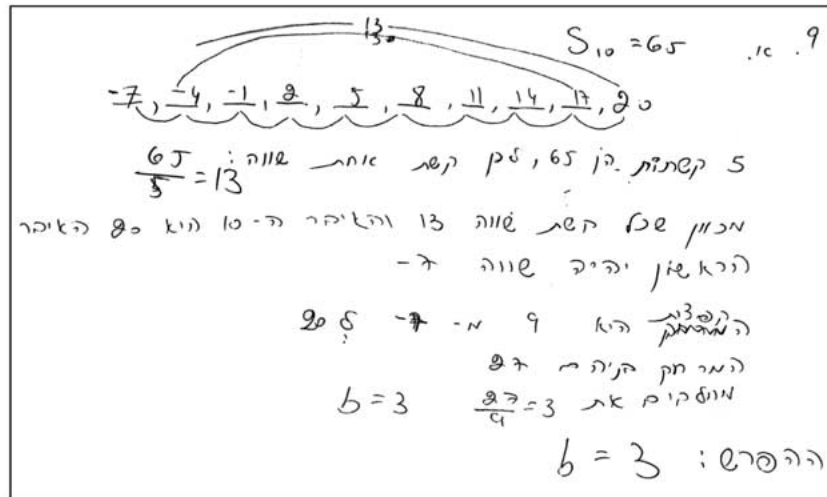 9. א. S₁₀ = 65
13
13
-7, -4, -1, 2, 5, 8, 11, 14, 17, 20
5 קשתות הן 65, לכן קשת אחת שווה: 65/5 = 13
מכוון שכל קשת שווה 13 והאיבר ה-10 הוא 20 האיבר
הראשון יהיה שווה -7
קפיצות היא 9 מ- -7 ל 20
המרחק בניהם 27
מחלקים את 27/9 = 3 b = 3
ההפרש: b = 3